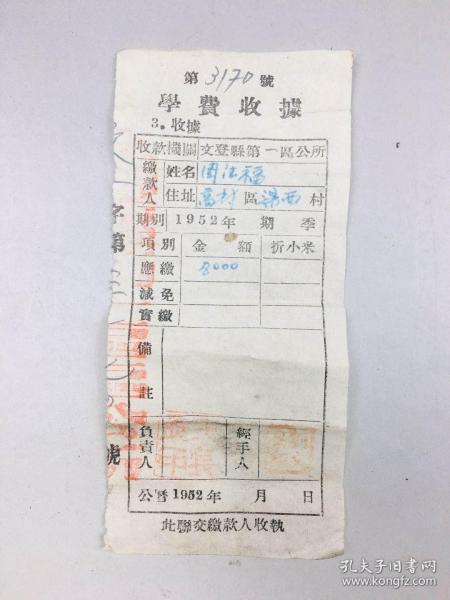 第3170號
學費收據
3.收據
收款機關 文登縣第一區公所
繳款人 姓名 周法福
住址 高村區 梁西村
期別 1952年 期 季
項別 金額 折小米
應繳 8000
減免
實繳
備註
負責人 經手人
公曆1952年 月 日
此聯交繳款人收執
字第 號
孔夫子旧书网
www.kongfz.com